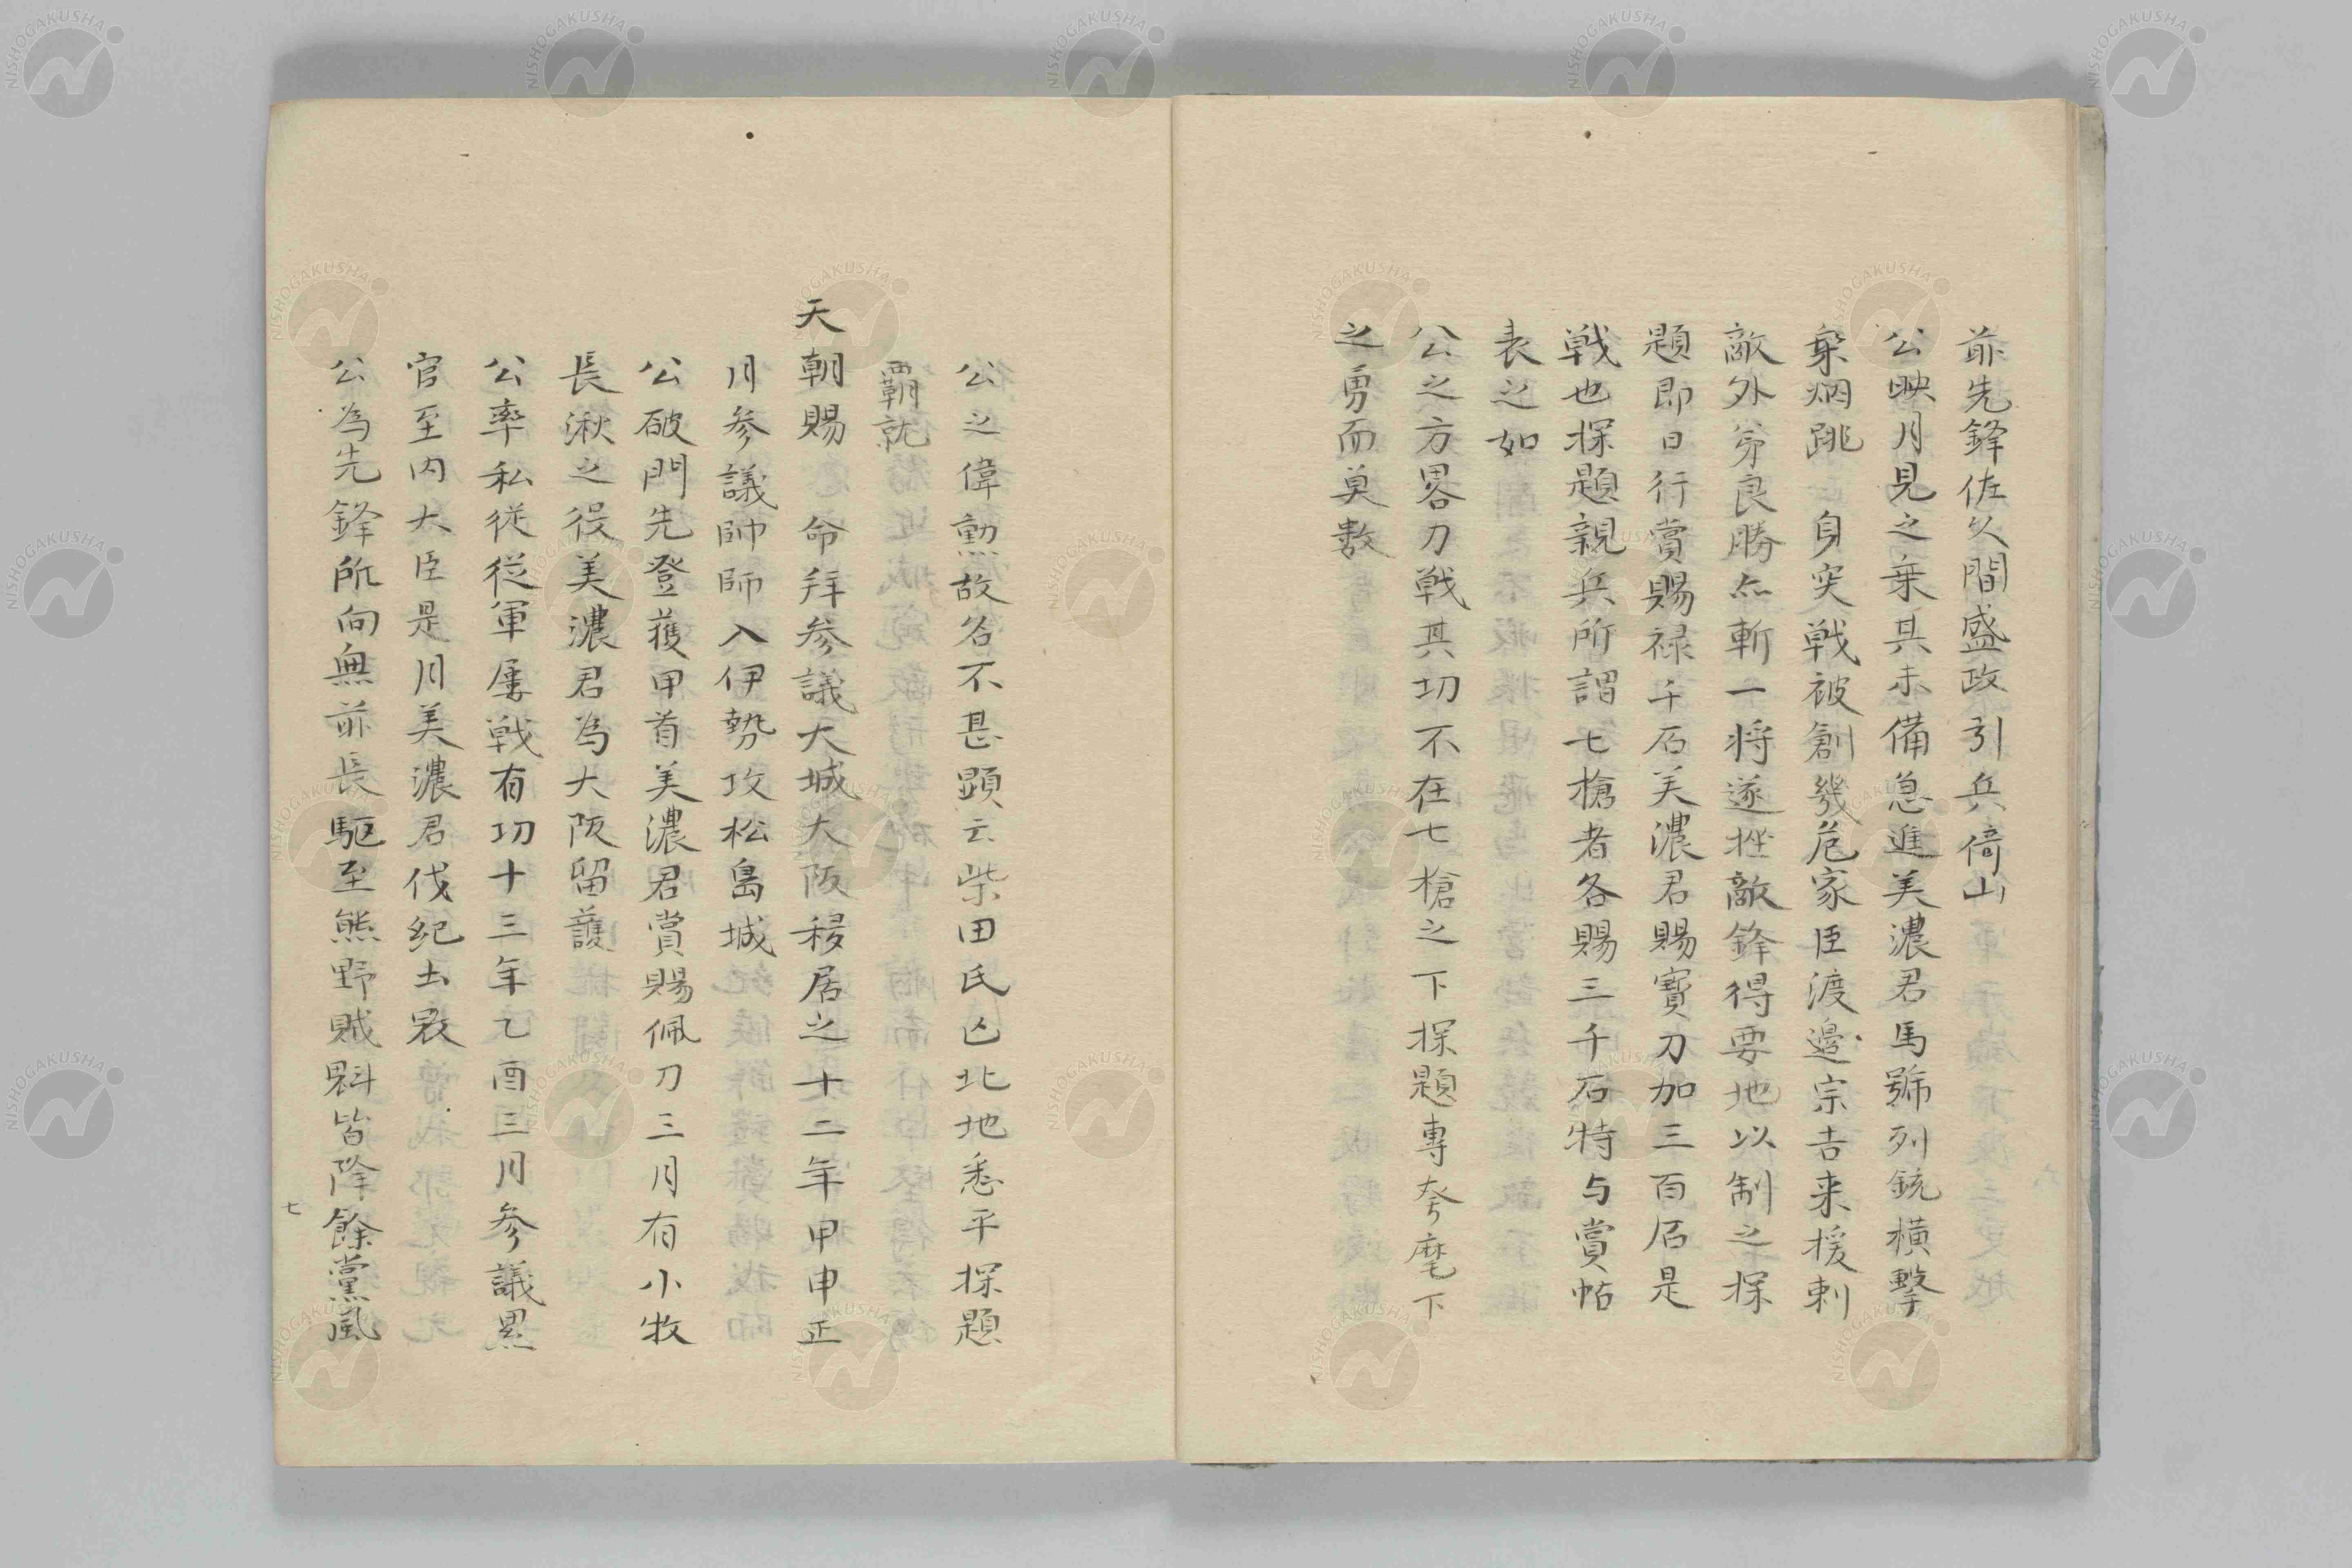 前先鋒佐久間盛政引兵倚山
公映月見之乗其未備急進美濃君馬號列銃横撃
穿烟跳身突戦被創幾危家臣渡邉宗吉来援刺
敵外弟良勝亦斬一将遂挫敵鋒得要地以制之探
題即日行賞賜禄千石美濃君賜寶刀加三百石是
戦也探題親兵所謂七槍者各賜三千石特与賞帖
表之如
公之方畧力戦其功不在七槍之下探題專夸麾下
之勇而莫敷
公之偉勲故名不甚顕云柴田氏亡北地悉平探題
覇就
天朝賜命拜参議大城大阪移居之十二年甲申正
月参議帥師入伊勢攻松島城
公破門先登獲甲首美濃君賞賜佩刀三月有小牧
長湫之役美濃君為大阪留護
公率私従従軍屡戦有功十三年乙酉三月参議累
官至内大臣是月美濃君伐紀土寇
公為先鋒所向無前長駆至熊野賊魁皆降餘黨風
七
NISHOGAKUSHA